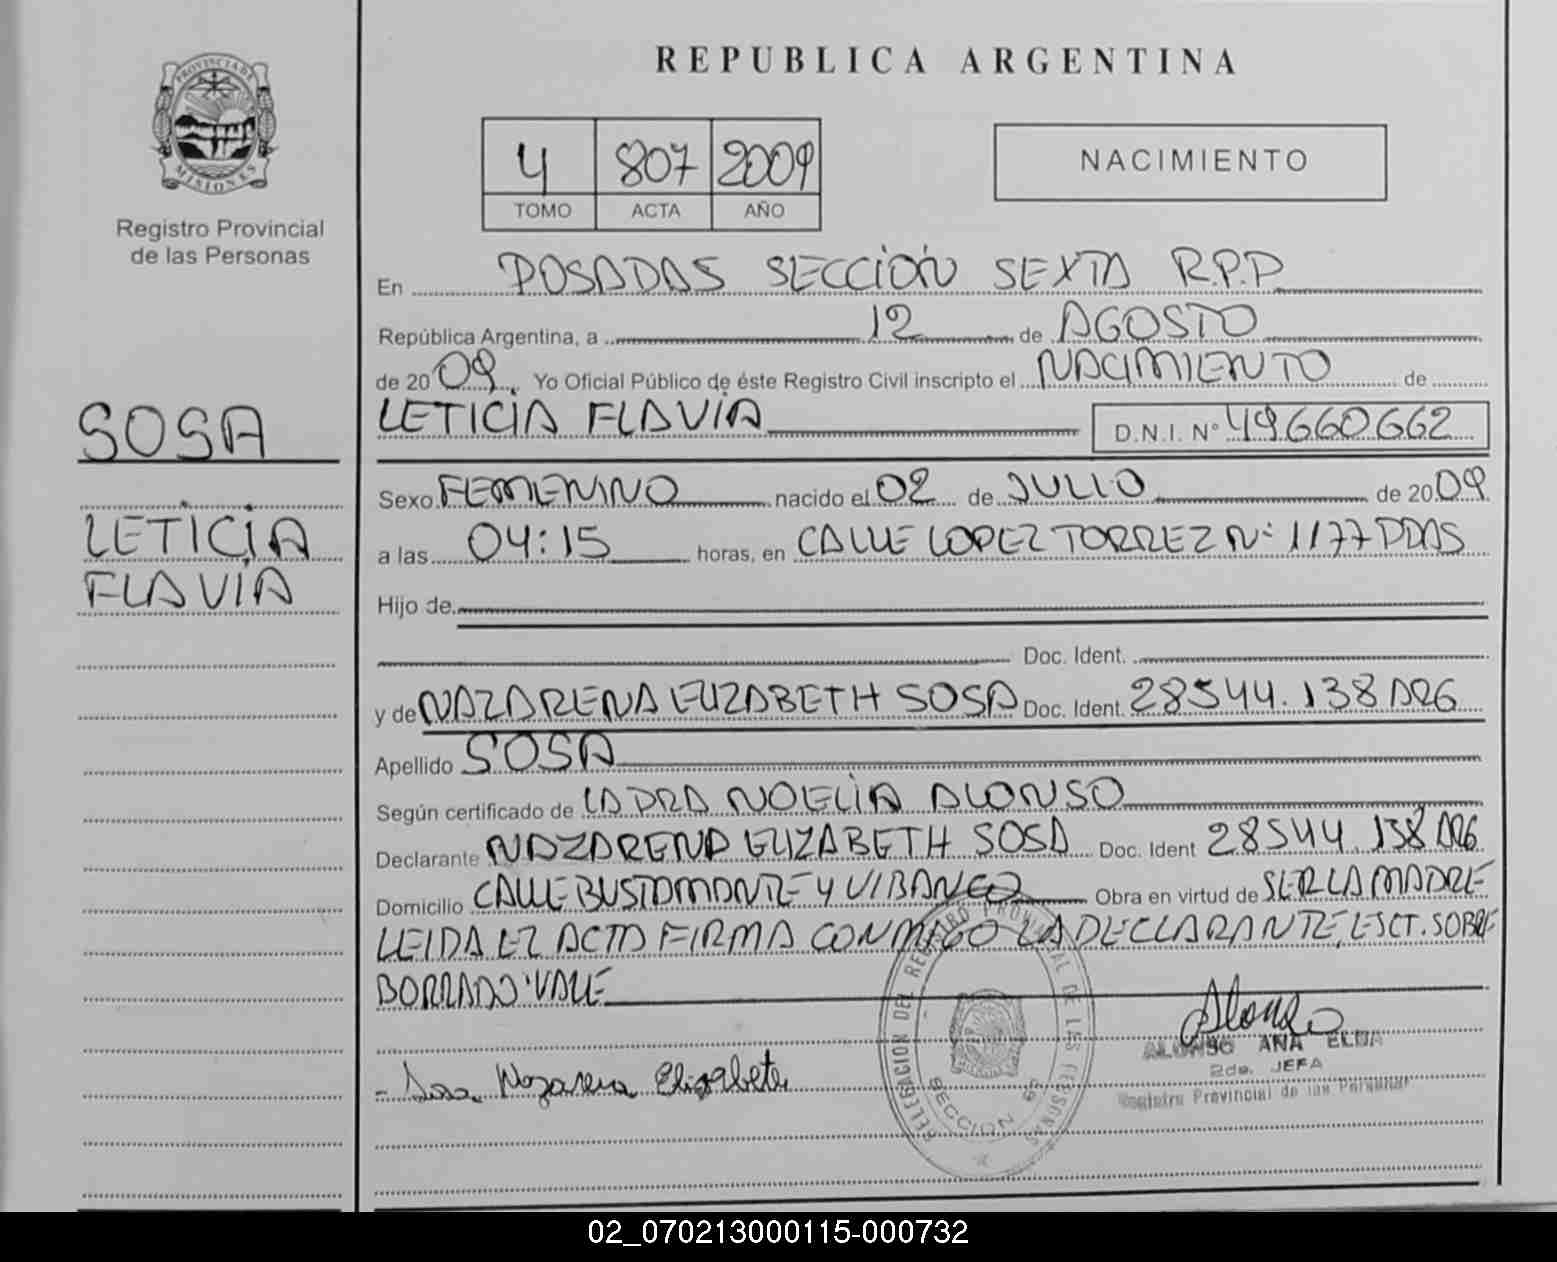 PROVINCIA DE
MISIONES
Registro Provincial
de las Personas
SOSA
LETICIA
FLAVIA
REPUBLICA ARGENTINA
4 807 2009
TOMO ACTA AÑO
NACIMIENTO
En POSADAS SECCIÓN SEXTA R.P.P
República Argentina, a 12 de AGOSTO
de 2009. Yo Oficial Público de éste Registro Civil inscripto el NACIMIENTO de
LETICIA FLAVIA D.N.I. N° 49660662
Sexo FEMENINO nacido el 02 de JULIO de 2009
a las 04:15 horas, en CALLE LOPEZ TORREZ N: 1177 PDAS
Hijo de
Doc. Ident.
y de NAZARENA ELIZABETH SOSA Doc. Ident. 28544.138 ARG
Apellido SOSA
Según certificado de LA DRA NOELIA ALONSO
Declarante NAZARENA ELIZABETH SOSA Doc. Ident 28544.138 ARG
Domicilio CALLE BUSTAMANTE Y VIBANCO Obra en virtud de SER LA MADRE
LEIDA EL ACTA FIRMA CONMIGO LA DECLARANTE, ESCT. SOBRE
BORRADO "VALE
Alonso
ALONSO ANA ELBA
2da. JEFA
Registro Provincial de las Personas
- Sosa Nazarena Elizabeth
DELEGACION DEL REGISTRO PROVINCIAL DE LAS PERSONAS
SECCION 6ª
02_070213000115-000732